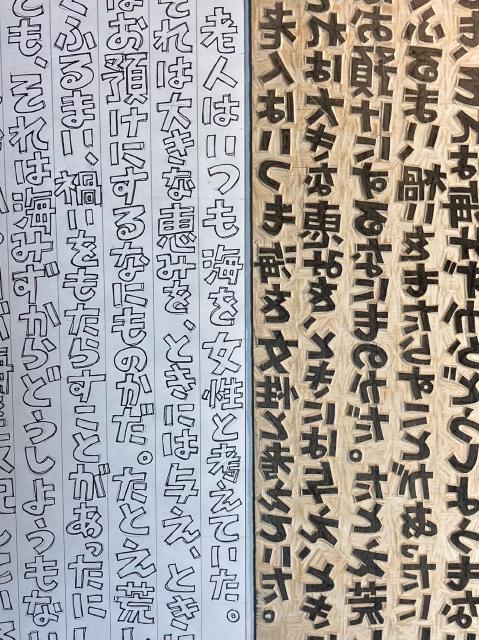 老人はいつも海を女性と考えていた。
それは大きな恵みを、ときには与え、とき
はお預けにするなにものかだ。たとえ荒
くふるまい、禍いをもたらすことがあったにし
ても、それは海みずからどうしようもない
老人はいつも海を女性と考えていた。
それは大きな恵みを、ときには与え、とき
はお預けにするなにものかだ。たとえ荒
くふるまい、禍いをもたらすことがあったに
も、それは海みずからどうしようもな